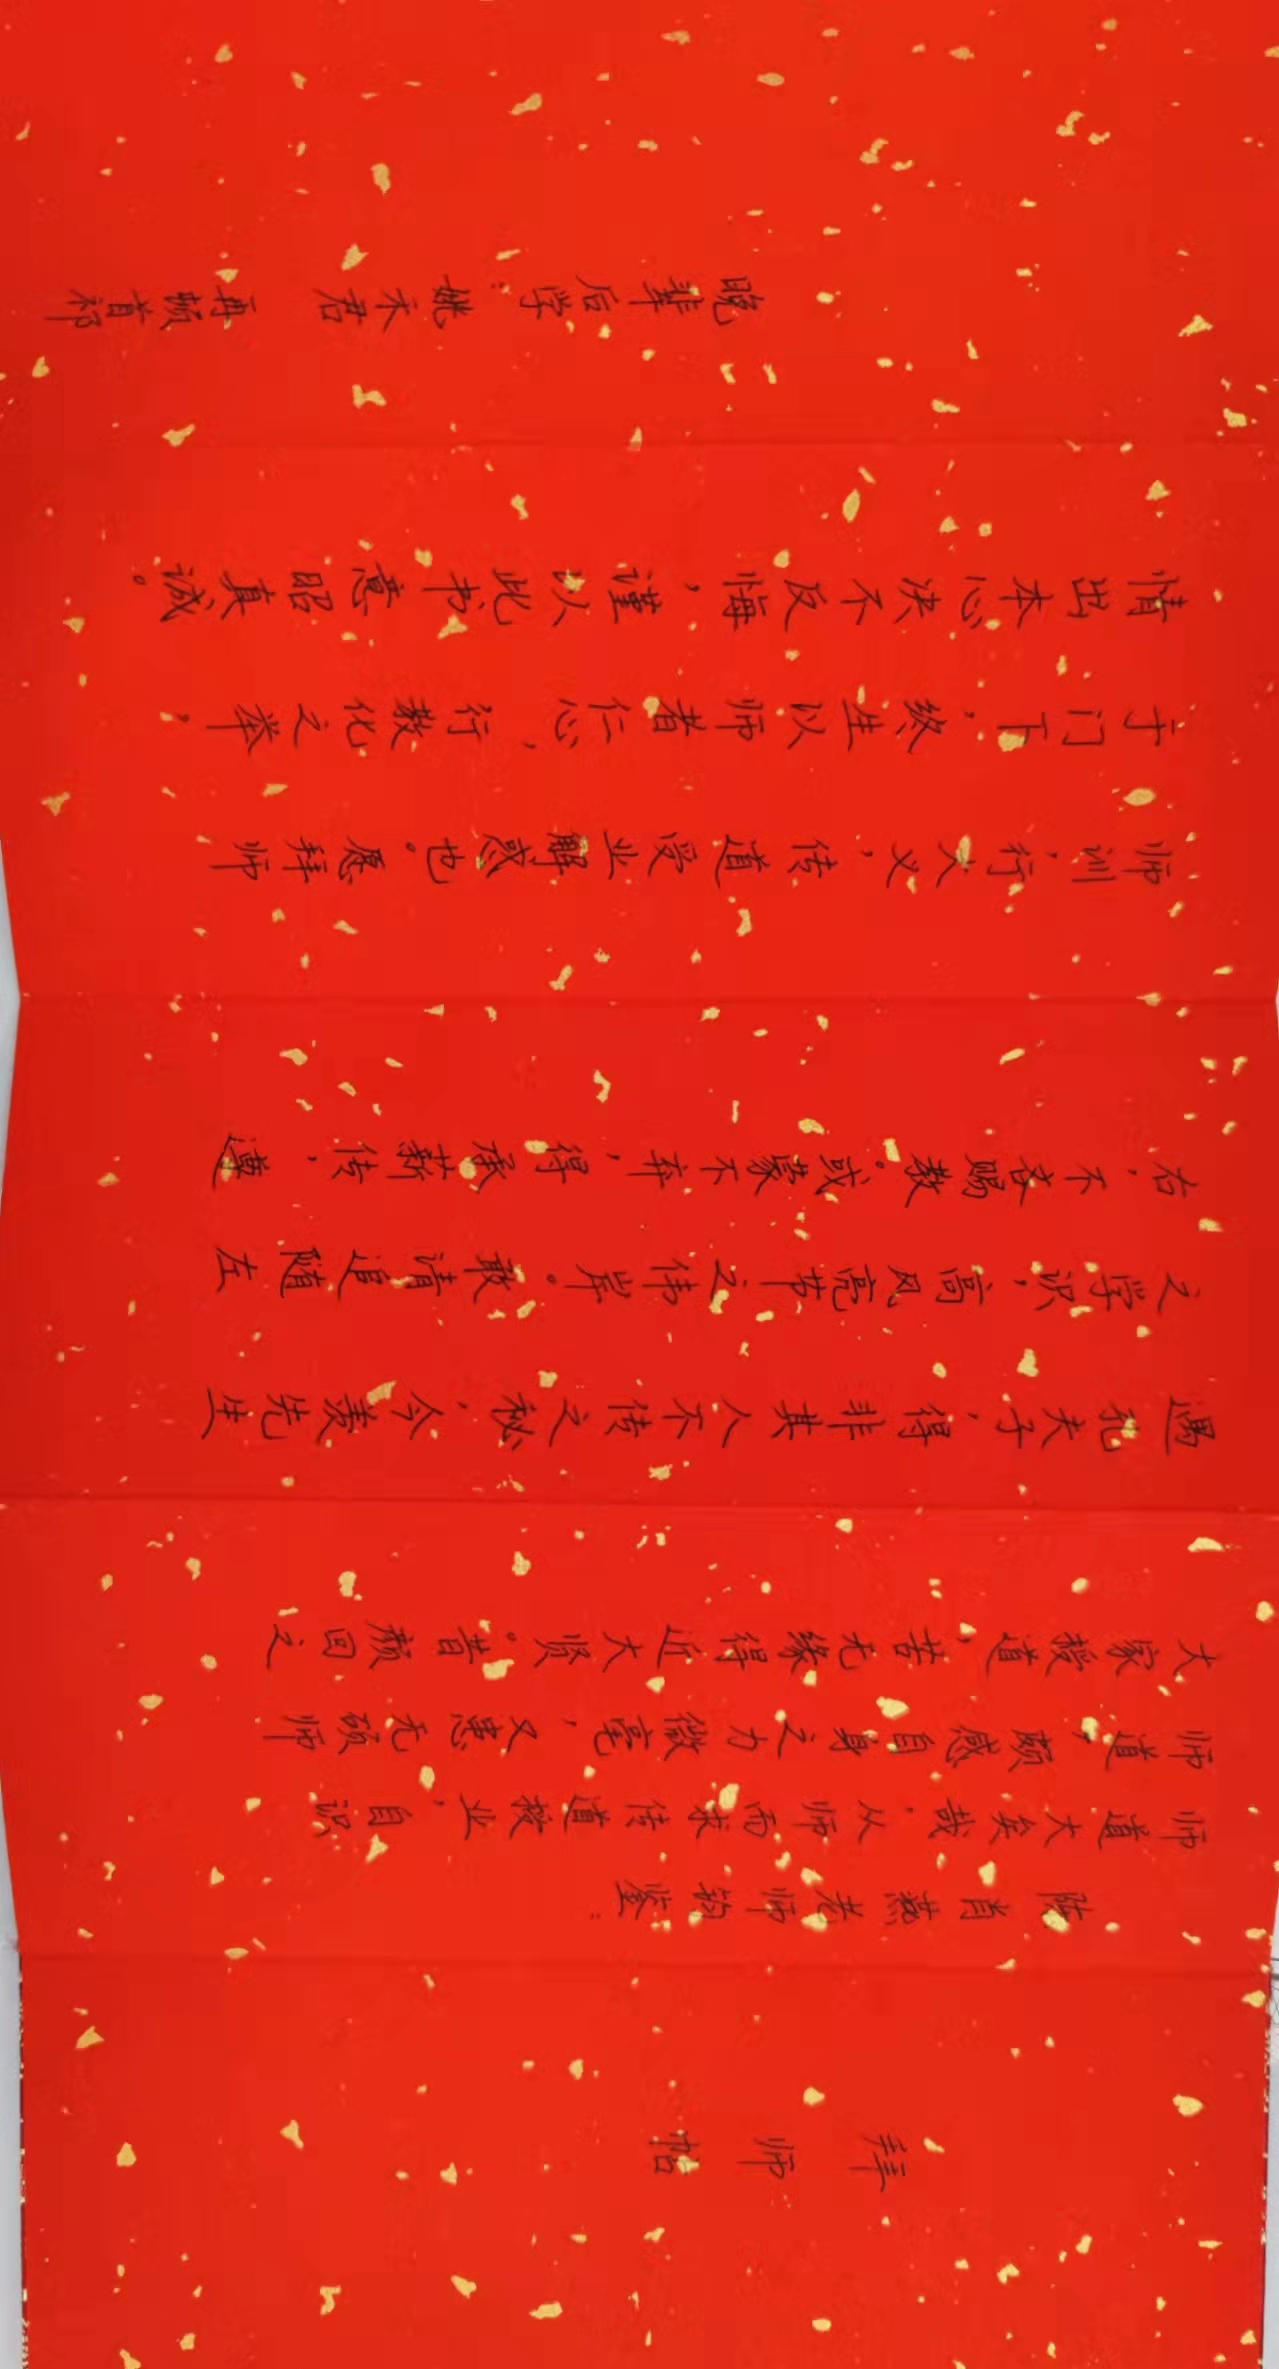 拜师帖
陈肖燕老师钧鉴:
师道大矣哉,从师而求传道授业,自识
师道,颇感自身之力微毫,又患无硕师
大家授道,苦无缘得近大贤。昔颜回之
遇孔夫子,得非其人不传之秘,今羡先生
之学识,高风亮节之伟岸。敢请追随左
右,不吝赐教。或蒙不弃,得承薪传,遵
师训,行大义,传道受业解惑也。愿拜师
于门下,终生以师者仁心,行教化之举,
情出本心决不反悔,谨以此书意昭真诚。
晚辈后学:姚禾君 再顿首祁